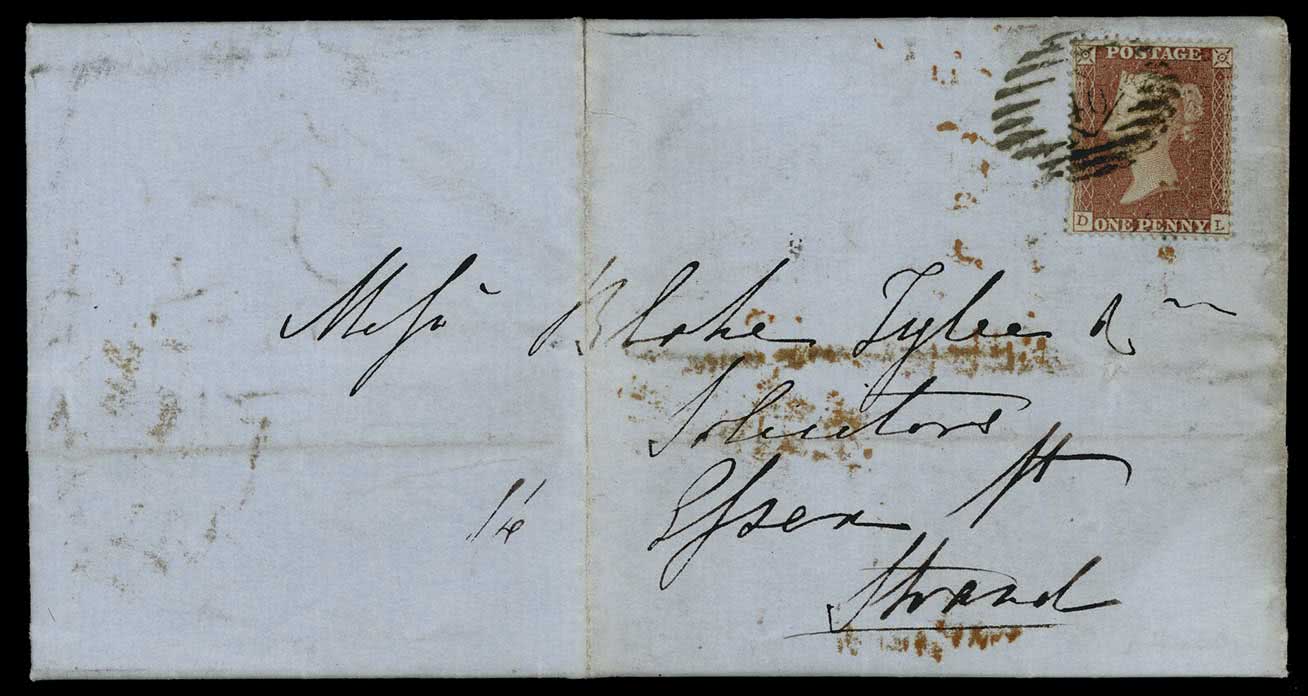 POSTAGE
40
D ONE PENNY L
Messrs Blake Tylee &
Solicitors
14 Essex St
Strand